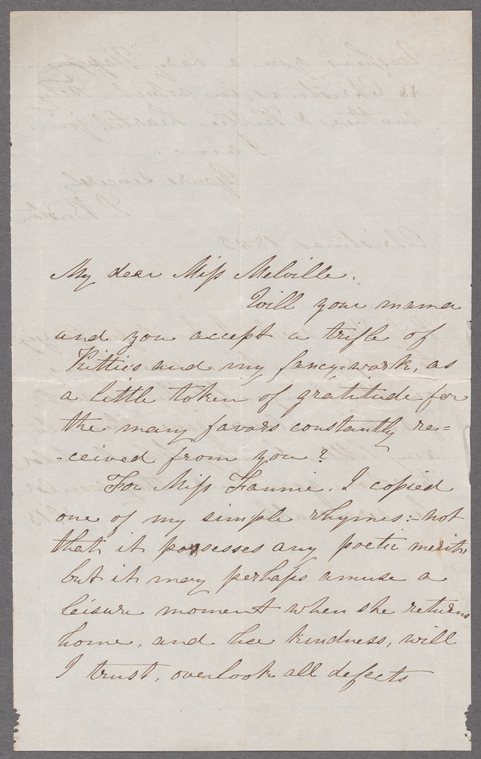 My dear Miss Melville.
Will your mama
and you accept a trifle of
Kittie's and my fancy-work, as
a little token of gratitude for
the many favors constantly re=
-ceived from you?
For Miss Fannie. I copied
one of my simple rhymes:- not
that it possesses any poetic merits
but it may perhaps amuse a
leisure moment when she returns
home, and her kindness, will
I trust, overlook all defects